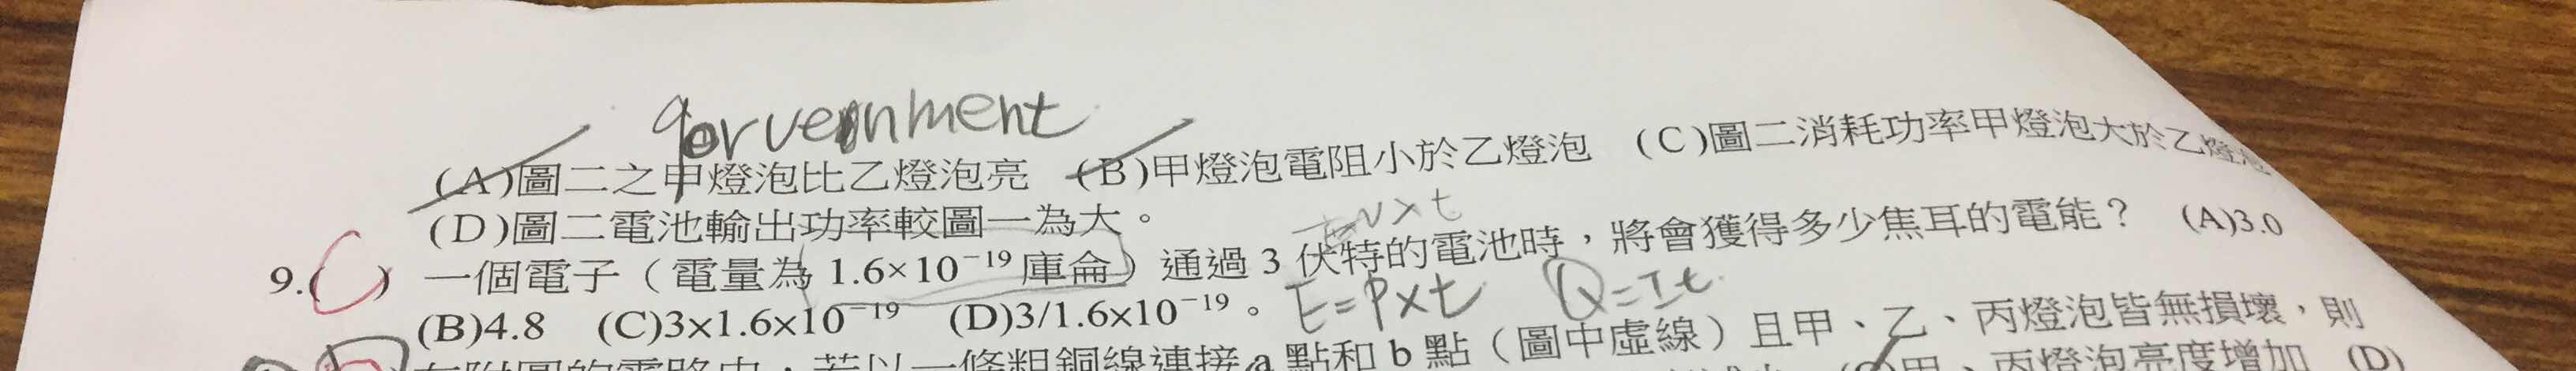 gorvernment
(A)圖二之甲燈泡比乙燈泡亮 (B)甲燈泡電阻小於乙燈泡 (C)圖二消耗功率甲燈泡大於乙燈泡
(D)圖二電池輸出功率較圖一為大。
9.( ) 一個電子（電量為 1.6×10⁻¹⁹ 庫侖）通過 3 伏特的電池時，將會獲得多少焦耳的電能？ (A)3.0
(B)4.8 (C)3×1.6×10⁻¹⁹ (D)3/1.6×10⁻¹⁹。 E=P×t Q=It
在附圖的電路中，若以一條粗銅線連接 a 點和 b 點（圖中虛線）且甲、乙、丙燈泡皆無損壞，則
甲、丙燈泡亮度增加 (D)